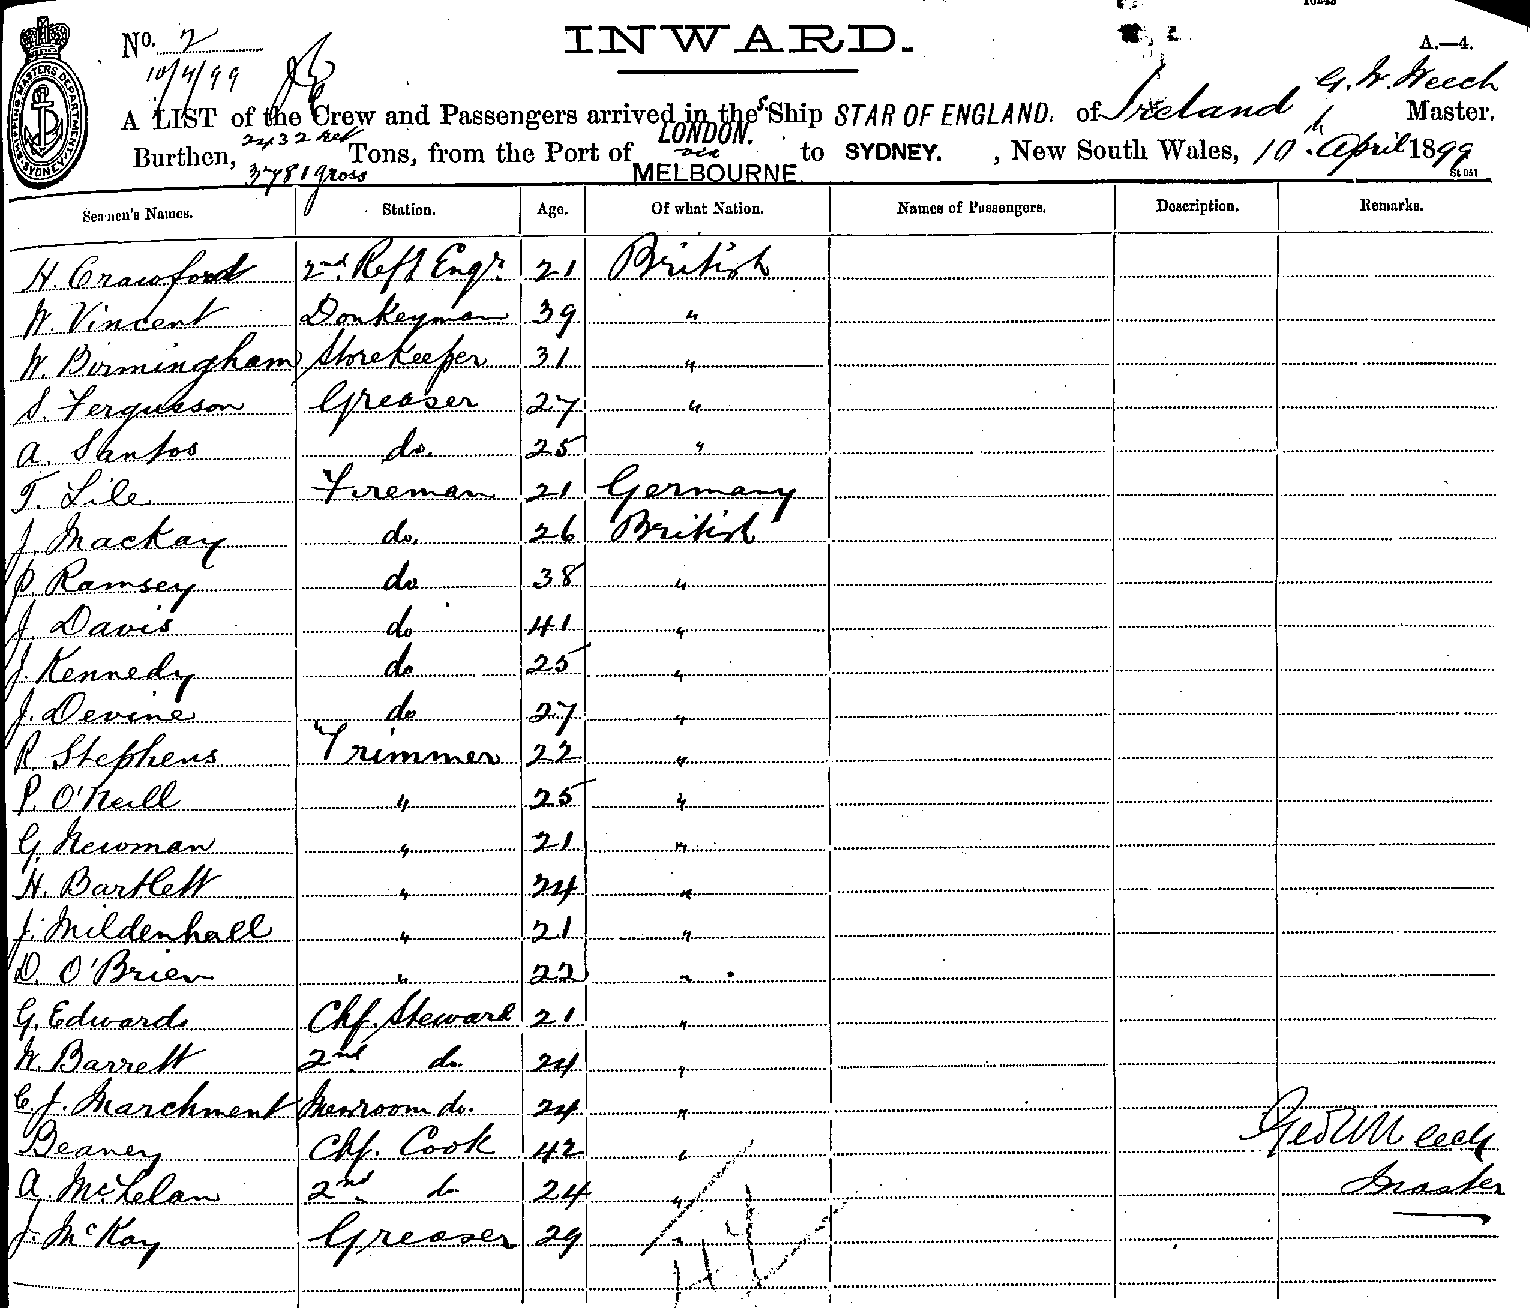 No. 2
INWARD.
A.—4.
10/4/99
G. W. Meech
A LIST of the Crew and Passengers arrived in the S Ship STAR OF ENGLAND. of Ireland Master,
Burthen, 2432 net Tons, from the Port of LONDON. via to SYDNEY. , New South Wales, 10th April 1899
3781 gross MELBOURNE.
Seamen's Names. Station. Age. Of what Nation. Names of Passengers. Description. Remarks.
H Crawford 2nd Refr Engr. 21 British
W. Vincent Donkeyman 39 "
W. Birmingham Storekeeper 31 "
S. Fergusson Greaser 27 "
A. Santos do. 25 "
T. Lile Fireman 21 Germany
J. Mackay do. 26 British
P. Ramsey do 38 "
J. Davis do 41 "
J. Kennedy do 25 "
J. Devine do 27 "
R Stephens Trimmer 22 "
P. O'Neill " 25 "
G. Newman " 21 "
H. Bartlett " 24 "
J. Mildenhall " 21 "
D. O'Brien " 22 "
G. Edwards Chf. Steward 21 "
W. Barrett 2nd do 24 "
C. J. Marchment Messroom do. 24 "
Beaney Chf. Cook 42 "
A. McLelan 2nd do 24 "
J. McKay Greaser 29 "
Geo W Meech
Master